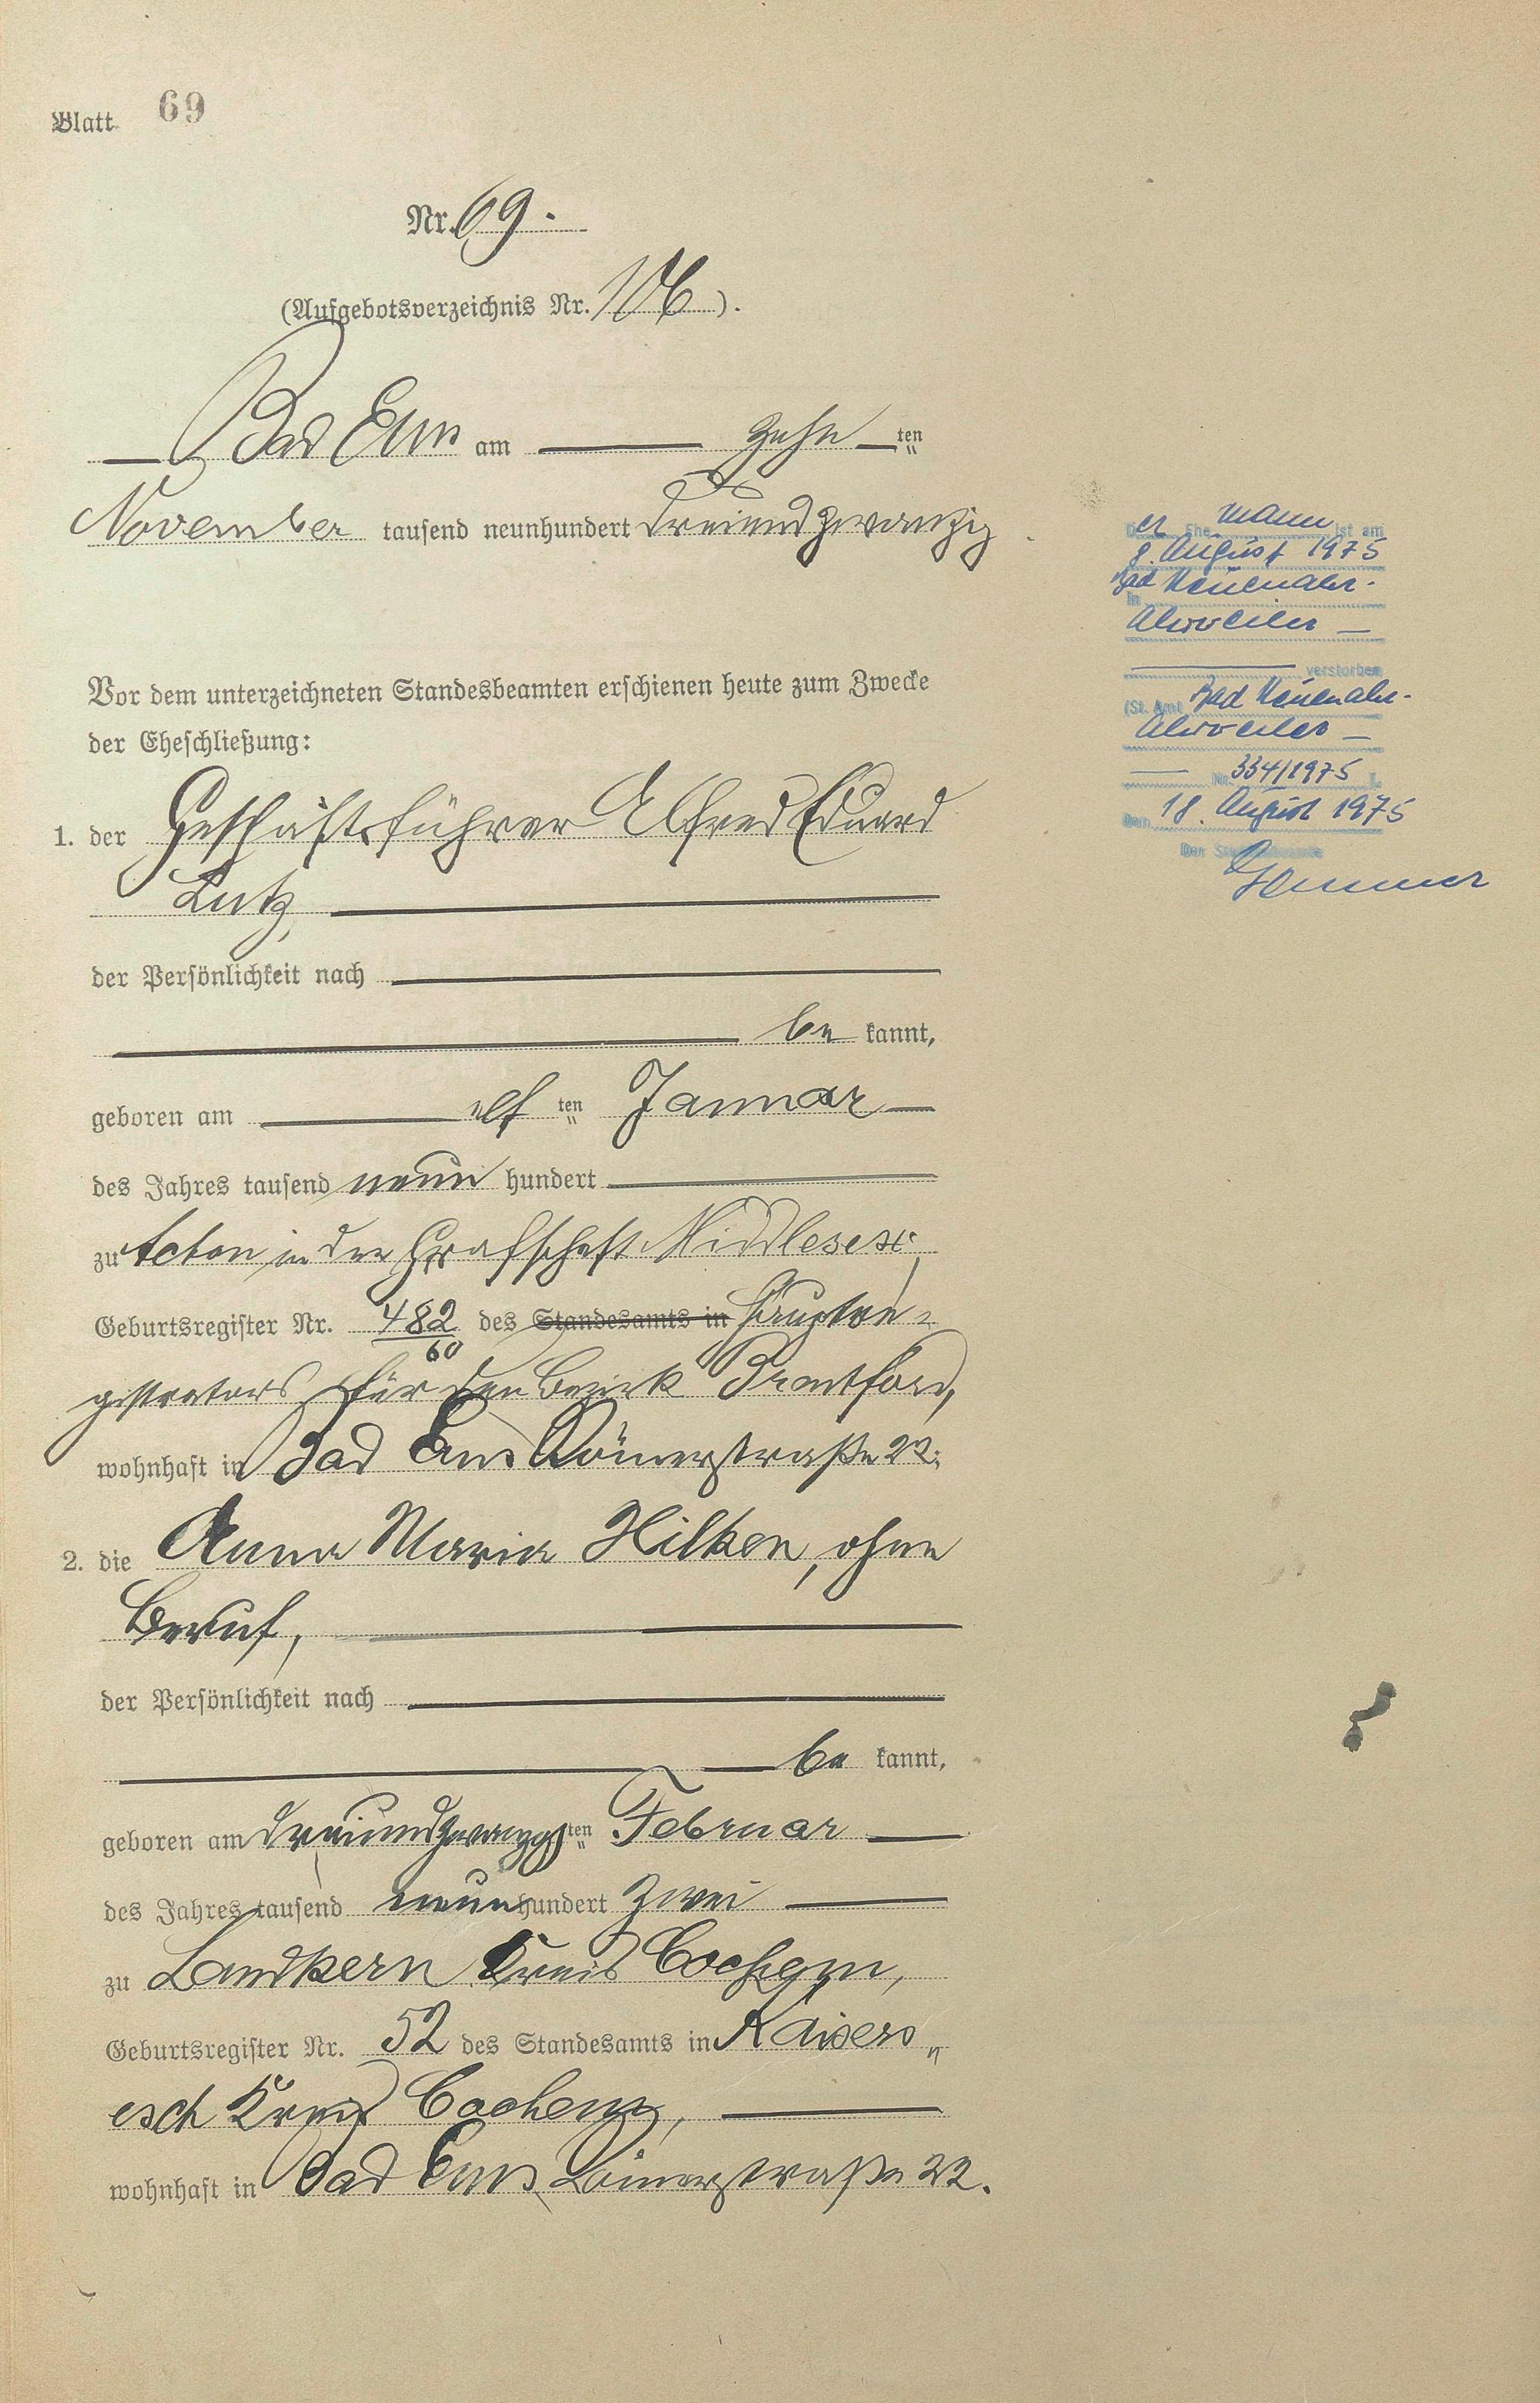 Blatt 69
Nr. 69.
(Aufgebotsverzeichnis Nr. 106).
Bad Ems am zehn ten
November tausend neunhundert dreiundzwanzig
Vor dem unterzeichneten Standesbeamten erschienen heute zum Zwecke
der Eheschließung:
1. der Geschäftsführer Alfred Eduard
Lutz,
der Persönlichkeit nach
be kannt,
geboren am elf ten Januar
des Jahres tausend neun hundert
zu Acton in der Grafschaft Middlesex,
Geburtsregister Nr. 482/60 des Standesamts in Hauptre-
gistrators für den Bezirk Brentford,
wohnhaft in Bad Ems Römerstraße 22;
2. die Anna Maria Hilken, ohne
Beruf,
der Persönlichkeit nach
be kannt,
geboren am dreiundzwanzigs ten Februar
des Jahres tausend neun hundert zwei
zu Landkern Kreis Cochem,
Geburtsregister Nr. 52 des Standesamts in Kaisers-
esch Kreis Cochem,
wohnhaft in Bad Ems, Römerstraße 22.
Der Ehemann ist am
8. August 1975
in Bad Neuenahr-
Ahrweiler
verstorben
(St. Amt Bad Neuenahr-
Ahrweiler
Nr. 334/1975 ).
Den 18. August 1975
Der Standesbeamte